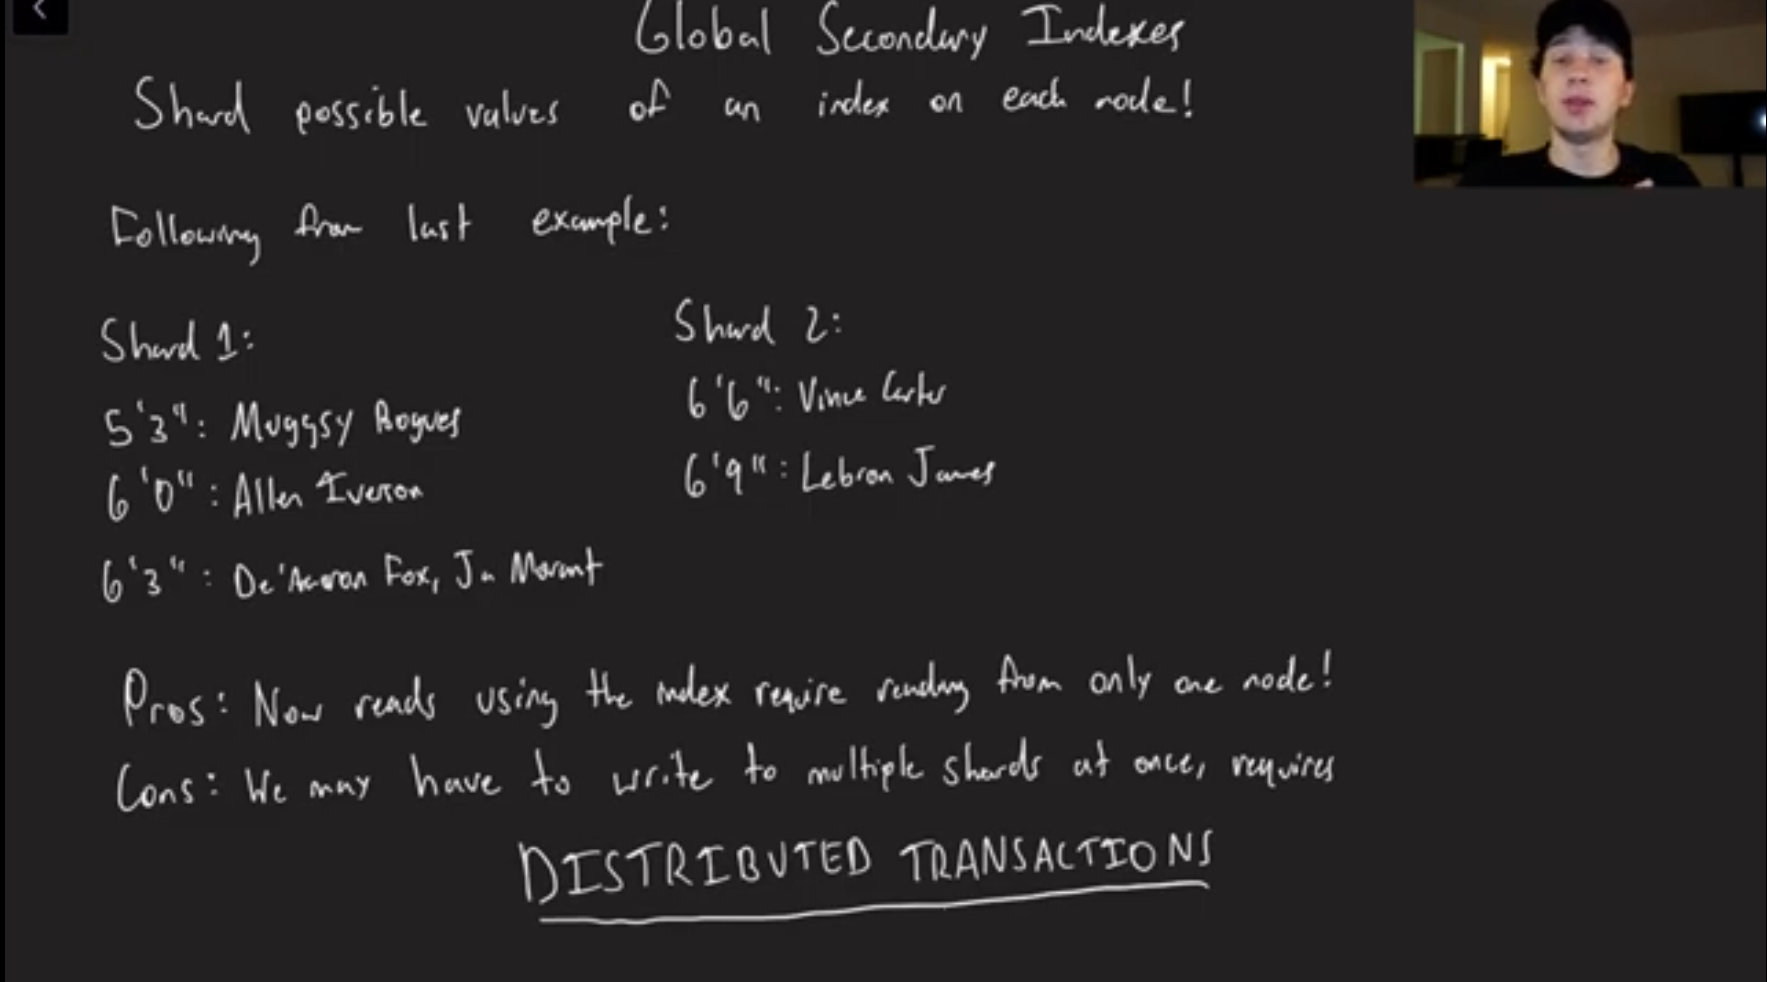 Global Secondary Indexes
Shard possible values of an index on each node!
Following from last example:
Shard 1:
5'3": Muggsy Bogues
6'0": Allen Iverson
6'3": De'Aaron Fox, Ja Morant
Shard 2:
6'6": Vince Carter
6'9": Lebron James
Pros: Now reads using the index require reading from only one node!
Cons: We may have to write to multiple shards at once, requires
DISTRIBUTED TRANSACTIONS